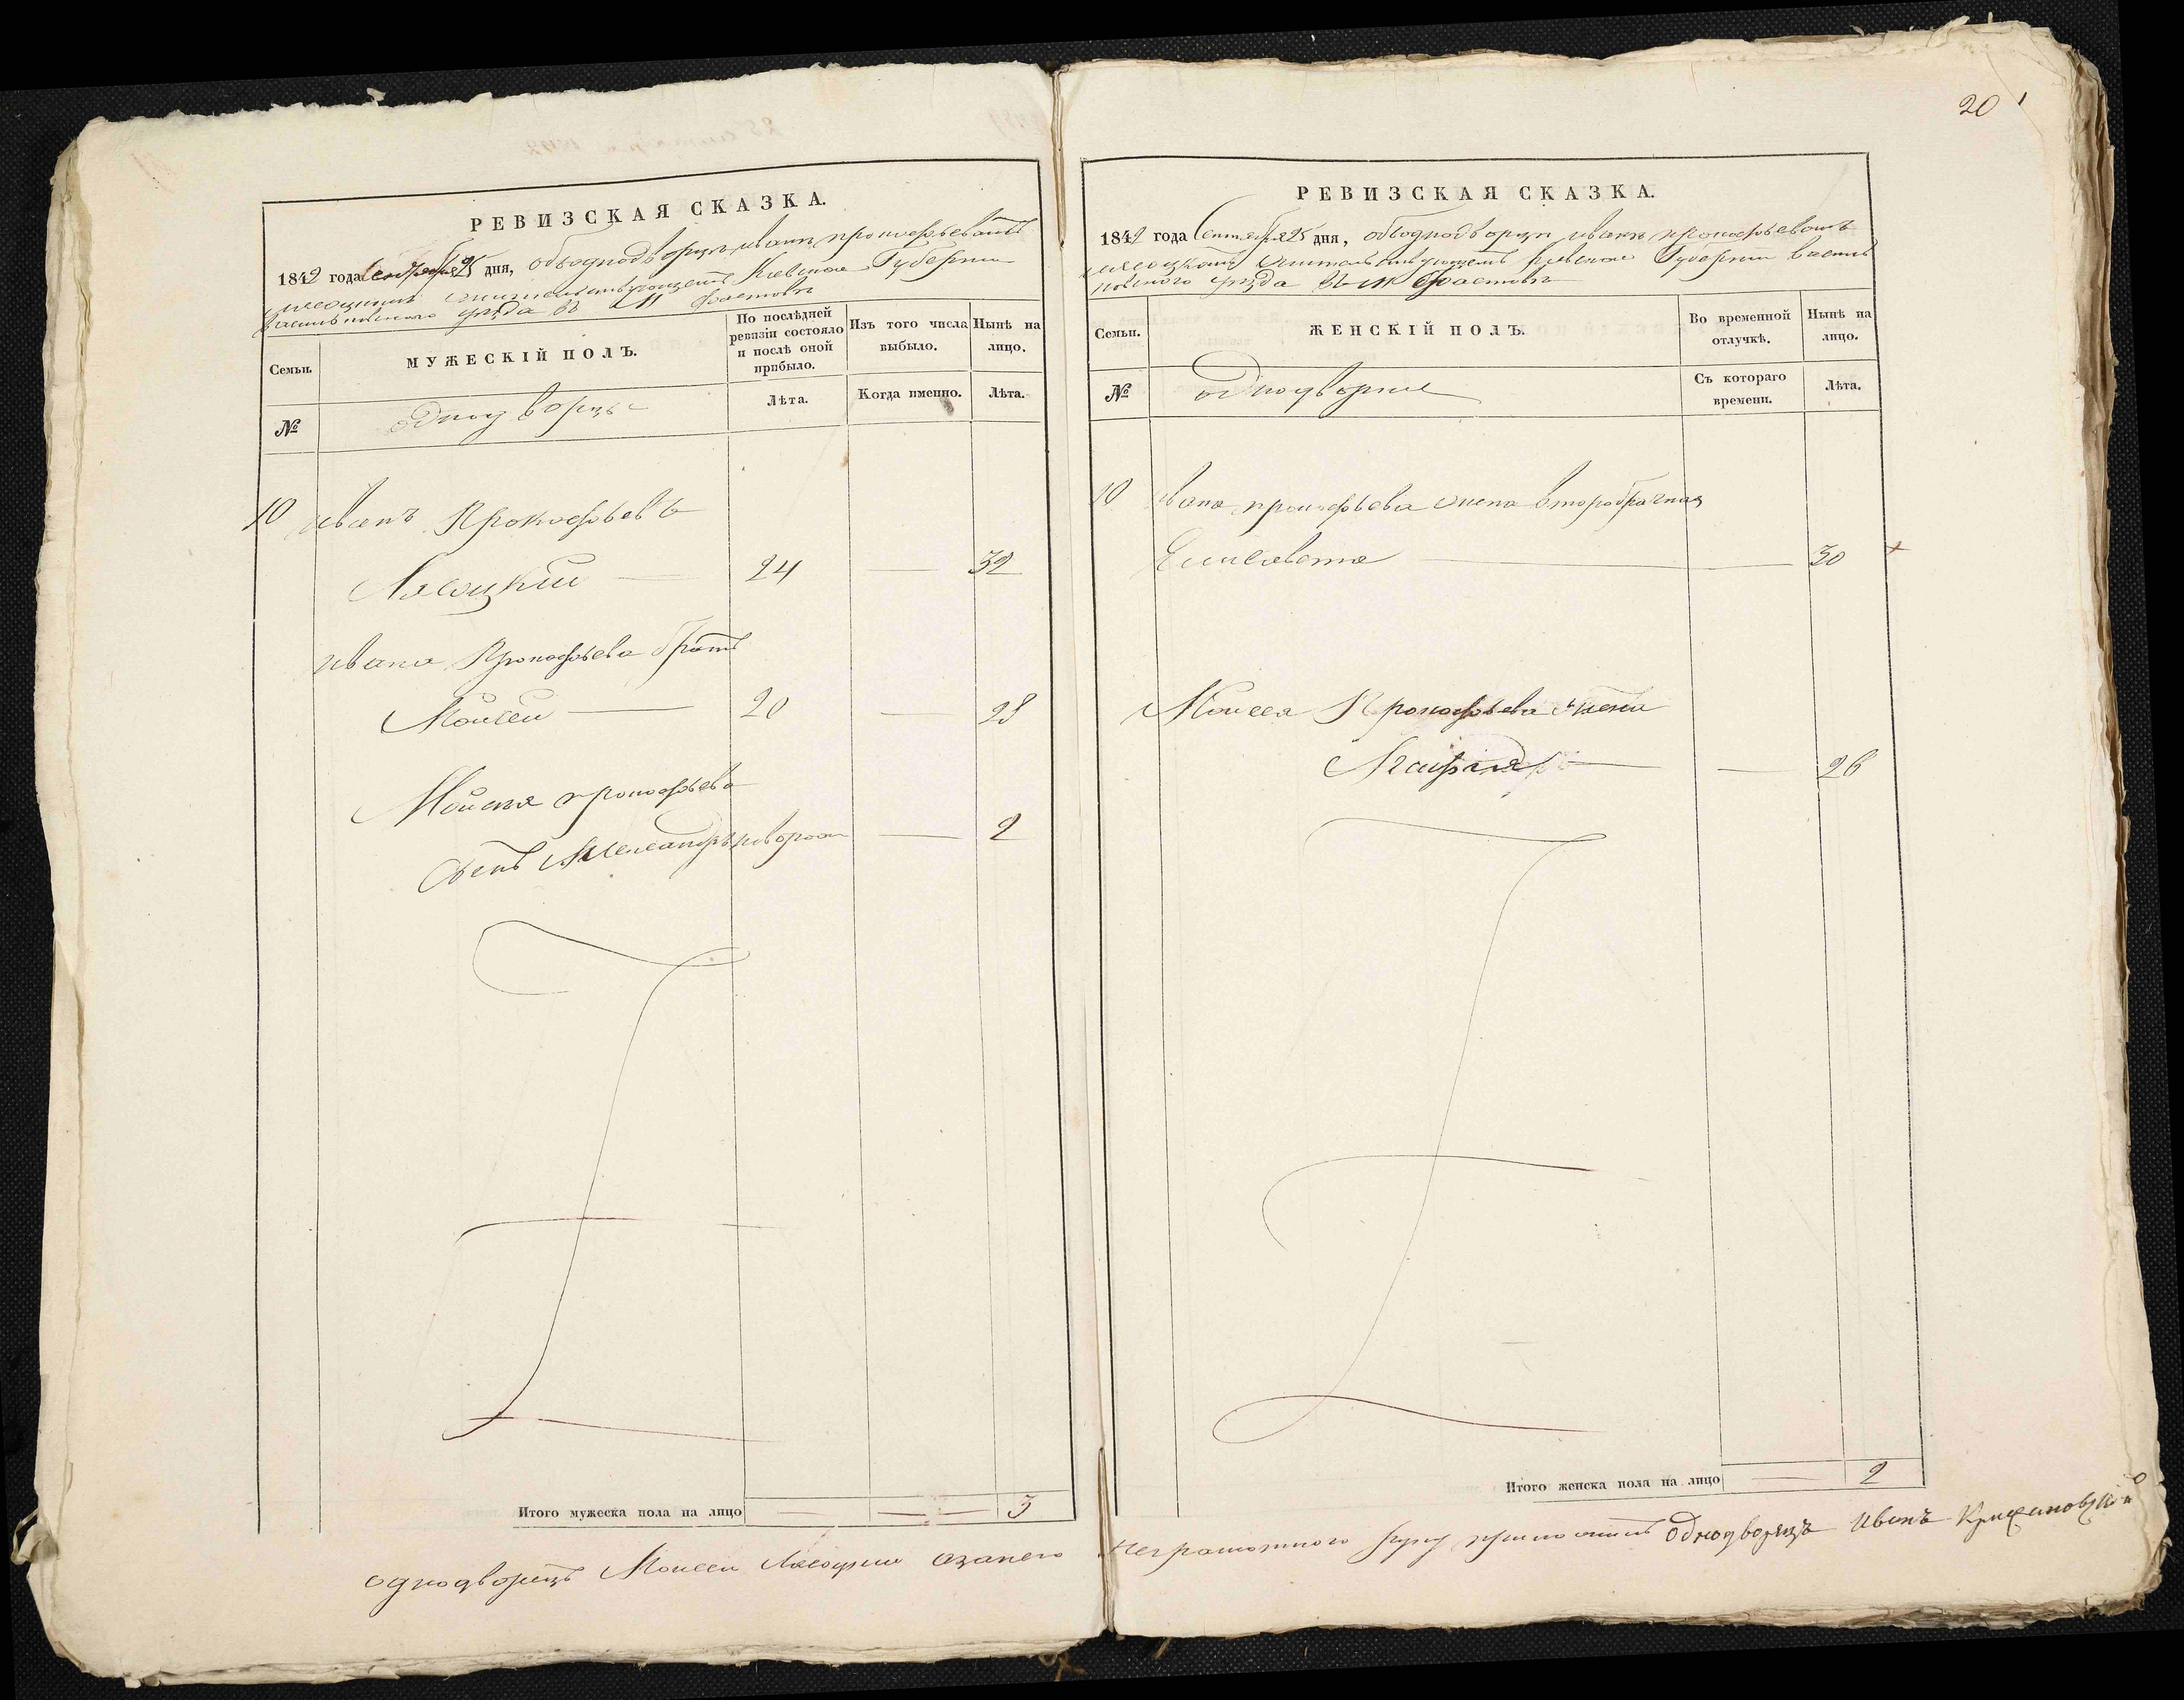 20
РЕВИЗСКАЯ СКАЗКА.
1842 года Сентября 25 дня, объ однодворцѣ иванѣ прокофьевомъ
жительствующемъ Кіевской Губерніи
васильковскаго уѣзда въ М Фастовѣ
Семьи.
МУЖЕСКІЙ ПОЛЪ.
По послѣдней ревизіи состояло и послѣ оной прибыло.
Изъ того числа выбыло.
Нынѣ на лицо.
№
однодворцы
Лѣта.
Когда именно.
Лѣта.
10 иванъ Прокофьевъ
Лясоцкій — 24 — 32
ивана Прокофьева братъ
Моисей — 20 — 28
Моисея прокофьева
сынъ Александръ новорож — 2
Итого мужеска пола на лицо — — 3
РЕВИЗСКАЯ СКАЗКА.
1842 года Сентября 25 дня, объ однодворцѣ иванѣ прокофьевомъ
лясоцкомъ жительствующемъ Кіевской Губерніи василь
ковскаго уѣзда въ м Фастовѣ
Семьи.
ЖЕНСКІЙ ПОЛЪ.
Во временной отлучкѣ.
Нынѣ на лицо.
№
однодворки
Съ котораго времени.
Лѣта.
10 ивана прокофьева жена второбрачная
Елисавета — — 30
Моисея Прокофьева жена
— — 26
Итого женска пола на лицо — 2
однодворецъ Моисей Лясоцкій а за него неграмотного руку приложилъ однодворецъ Иванъ